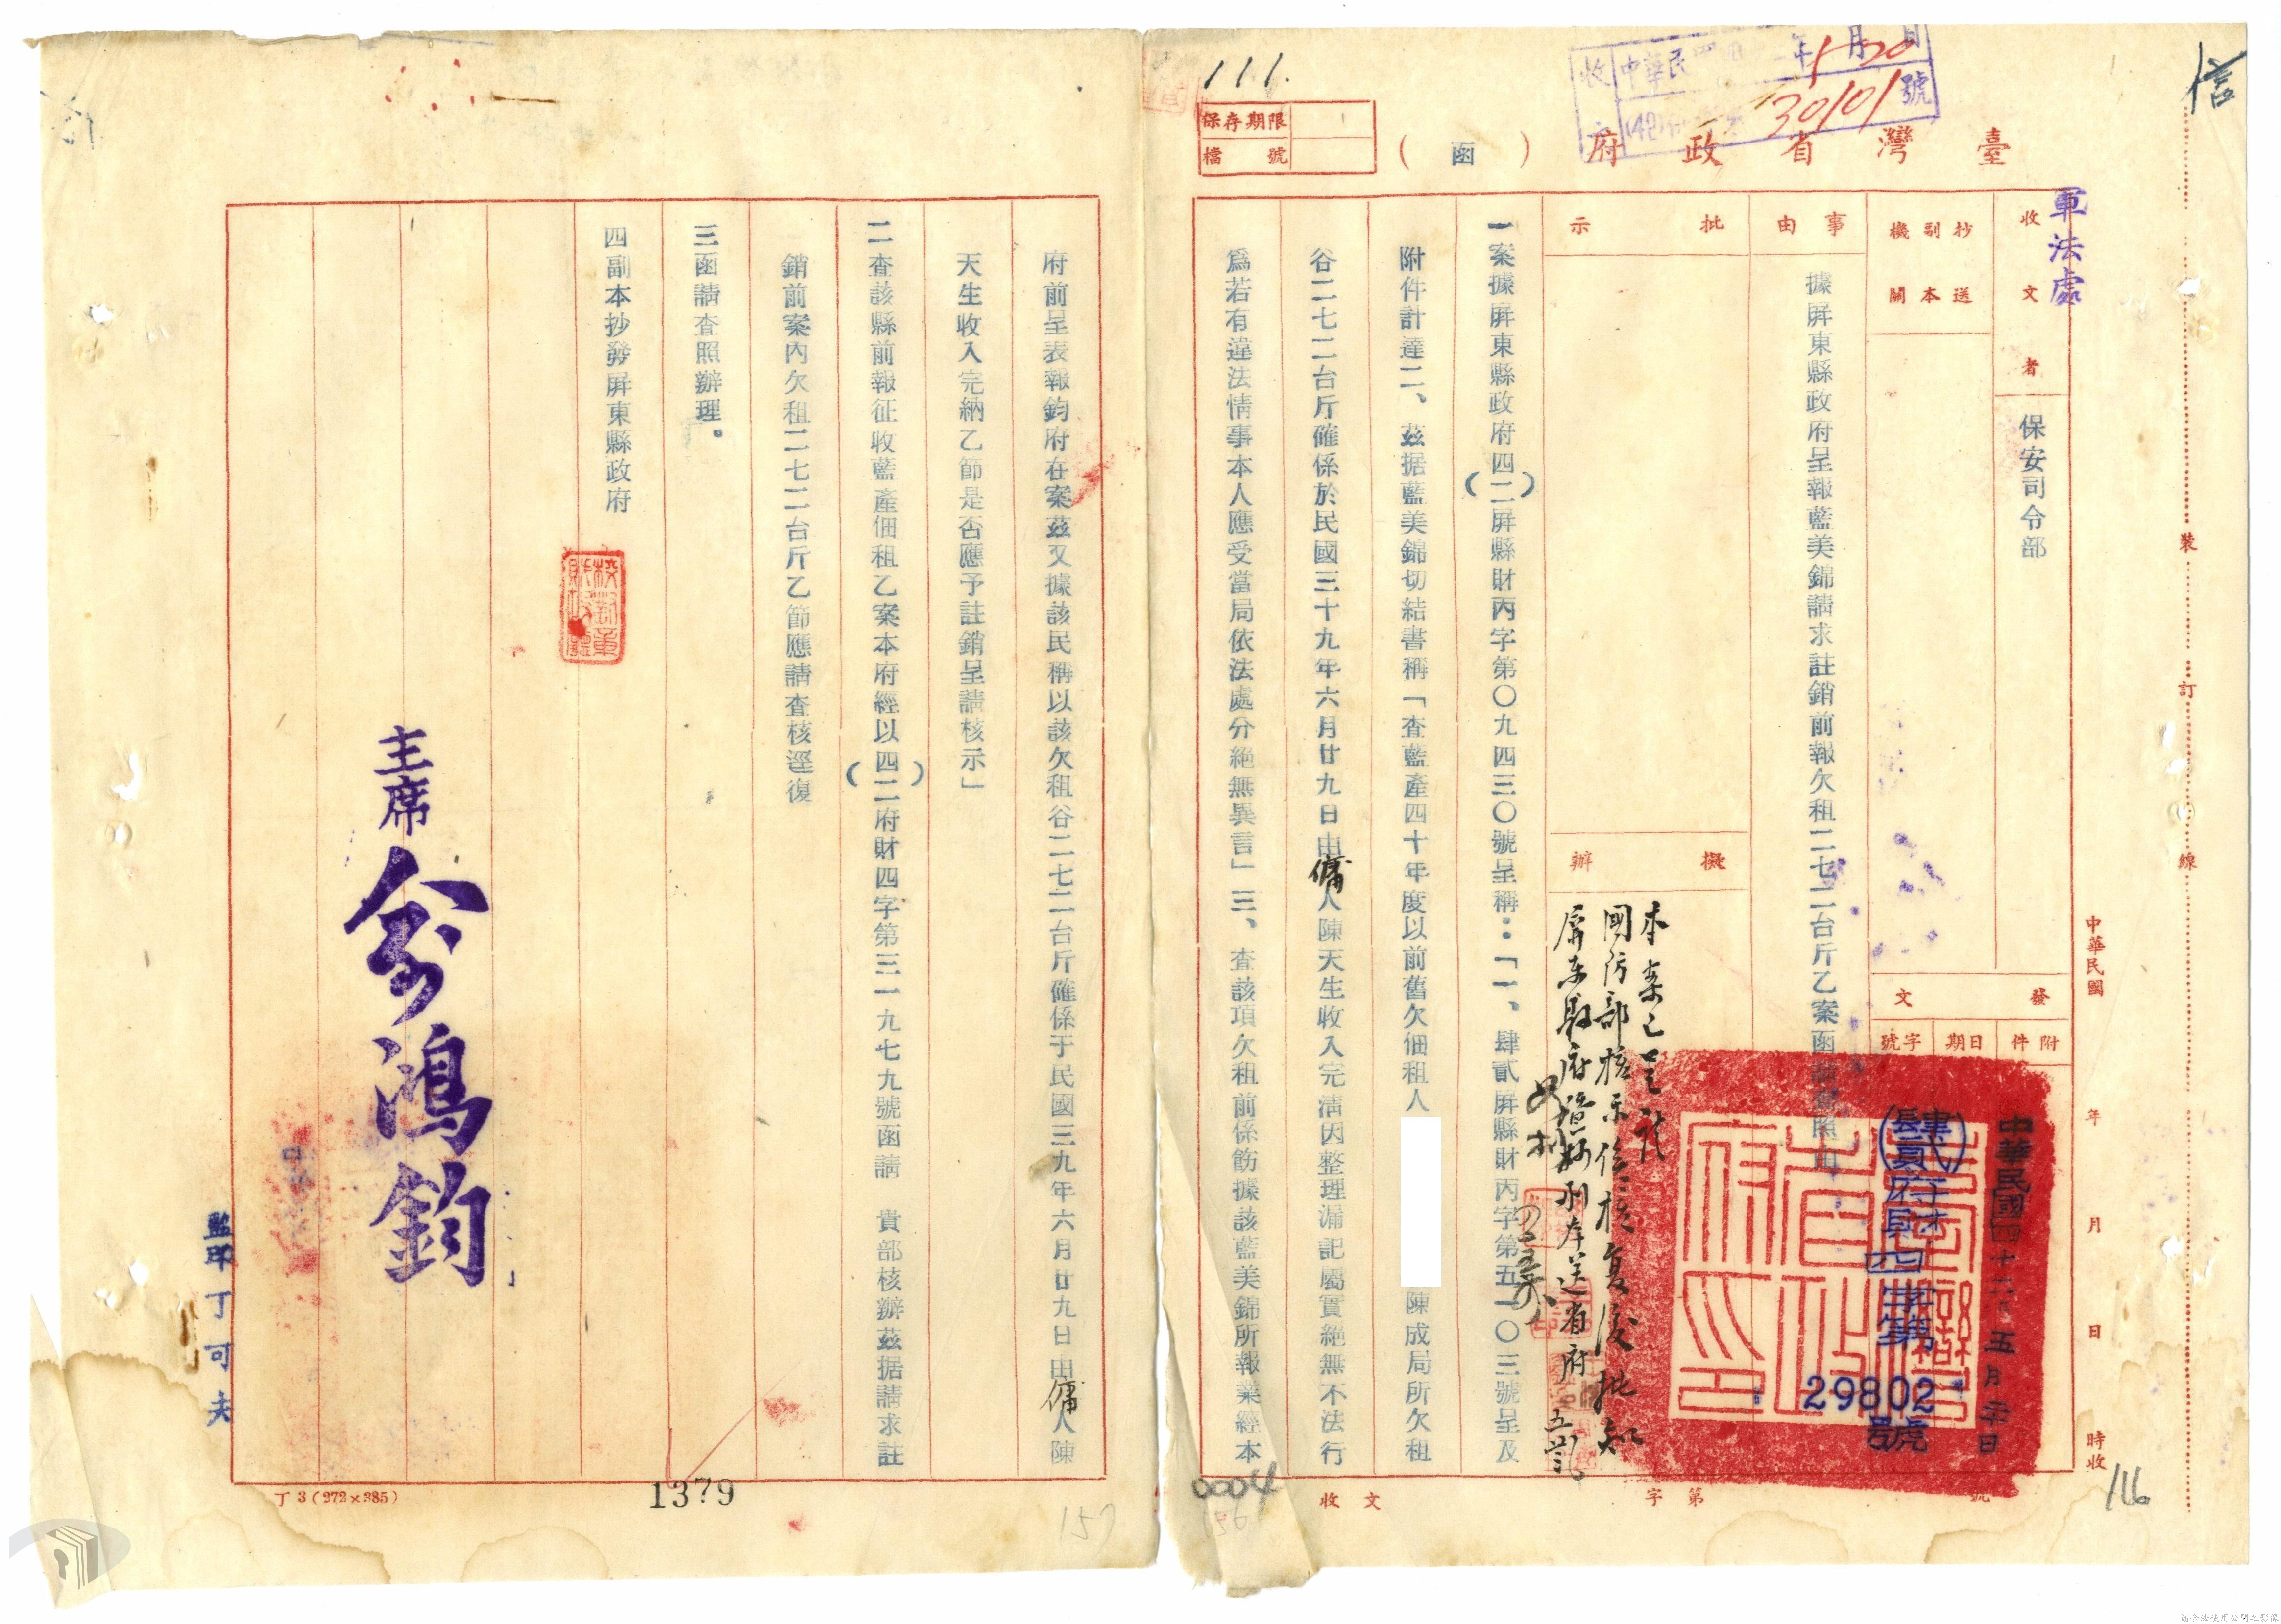 信
111.
保存期限
檔號
臺灣省政府(函)
收 中華民 年 月 日
5 20
30101 號
軍法處
收文者
保安司令部
抄送副本機關
事由
據屏東縣政府呈報藍美錦請求註銷前報欠租二七二台斤乙案函請查照由
批示
擬辦
本案已呈請
國防部核示俟核复後批知
屏东县府暨抄副本送省府
發文
附件
日期
字號
中華民國四十二年五月二十日
肆貳府財四字第
29802號
中華民國 年 月 日 時收
裝訂線
一案據屏東縣政府(四二)屏縣財丙字第〇九四三〇號呈稱：「一、肆貳屏縣財丙字第五一〇三號呈及
附件計達二、茲据藍美錦切結書稱「查藍產四十年度以前舊欠佃租人 陳成局所欠租
谷二七二台斤確係於民國三十九年六月廿九日由傭人陳天生收入完清因整理漏記屬實絕無不法行
爲若有違法情事本人應受當局依法處分絕無異言」三、查該項欠租前係飭據該藍美錦所報業經本
收文 字第 號
0004
156
116
府前呈表報鈞府在案茲又據該民稱以該欠租谷二七二台斤確係于民國三九年六月廿九日由傭人陳
天生收入完納乙節是否應予註銷呈請核示」
二查該縣前報征收藍產佃租乙案本府經以(四二)府財四字第三一九七九號函請 貴部核辦茲据請求註
銷前案內欠租二七二台斤乙節應請查核逕復
三函請查照辦理。
四副本抄發屏東縣政府
主席 俞鴻鈞
監印丁可夫
丁3(272×385)
1379
157
請合法使用公開之影像